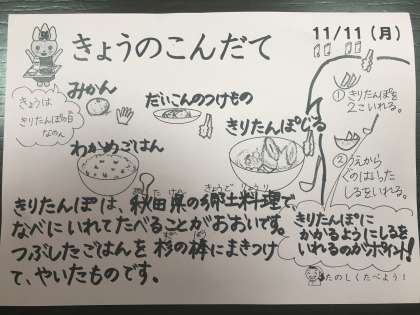 きょうのこんだて
11/11(月)
きょうは
きりたんぽの日
なのん
みかん
だいこんのつけもの
きりたんぽじる
わかめごはん
①きりたんぽを
2こいれる。
②うえから
ぐのはいった
しるをいれる。
きりたんぽに
かかるようにしるを
いれるのがポイント!
たのしくたべよう!
きりたんぽは、秋田県の郷土料理で、
なべにいれてたべることがおおいです。
つぶしたごはんを杉の棒にまきつけ
て、やいたものです。